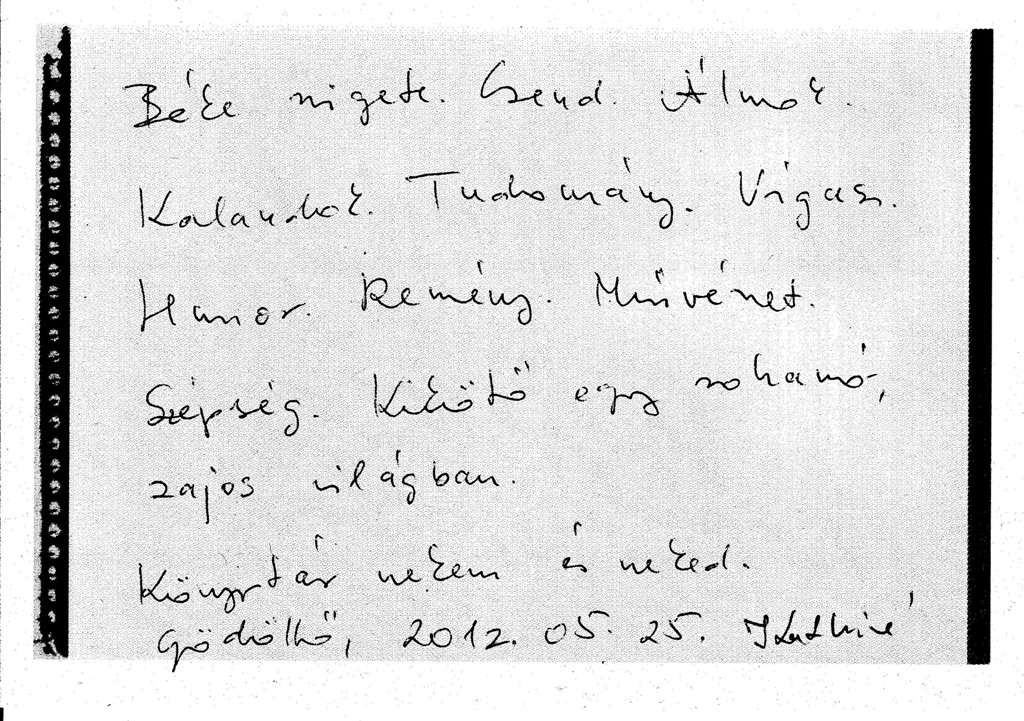 Béke szigete. Csend. Álmok.
Kalandok. Tudomány. Vigasz.
Humor. Remény. Művészet.
Szépség. Kikötő egy rohanó,
zajos világban.
Könyvtár nekem és neked.
Gödöllő, 2012. 05. 25.